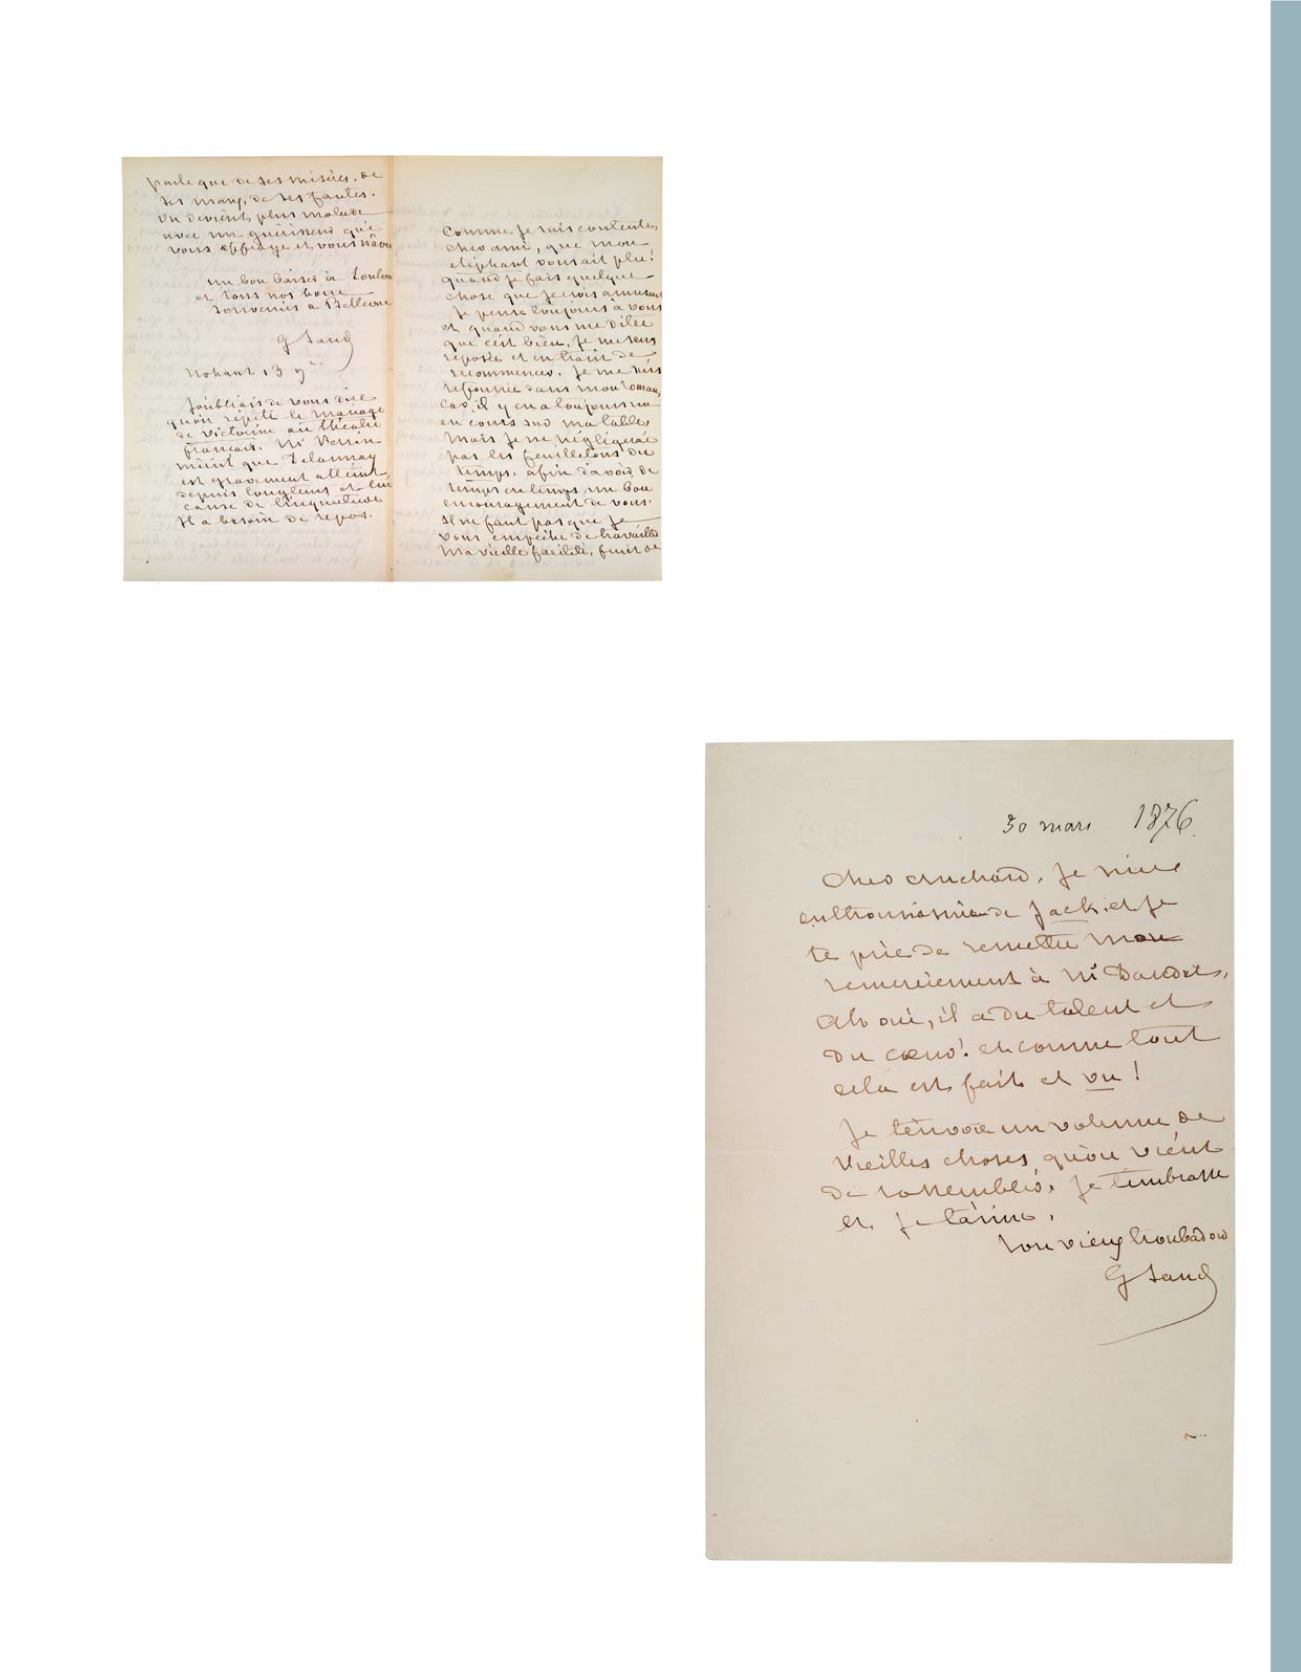 parle que de ses misères, de
ses maux, de ses fautes.
on devient plus malade
avec un guérisseur qui
vous effraye et vous navre
un bon baiser à Toulou
et tous nos bons
souvenirs à Bellevue
G Sand
Nohant 13 9bre
J'oubliais de vous dire
qu'on répète le mariage
de victorine au théatre
français. Mr Perrin
m'écrit que Delaunay
est gravement atteint
depuis longtems et lui
cause de l'inquiétude
Il a besoin de repos.
Comme je suis contente,
cher ami, que mon
éléphant vous ait plu!
quand je fais quelque
chose que je crois amusant
je pense toujours à vous
et quand vous me dites
que c'est bien, je me sens
reposée et en train de
recommencer. Je me suis
refourrée dans mon roman,
car il y en a toujours un
en cours sur ma table,
mais je ne négligerai
pas les feuilletons du
temps, afin d'avoir de
temps en temps un bon
encouragement de vous.
Il ne faut pas que je
vous empêche de travailler
Ma vieille facilité, fruit de
30 mars 1876
Cher cruchard, je suis
enthousiasmée de Jack et je
te prie de remettre mon
remerciement à Mr Daudet,
Ah oui, il a du talent et
du cœur! et comme tout
cela est fait et vu!
Je t'envoie un volume de
vieilles choses qu'on vient
de rassembler. Je t'embrasse
et je t'aime.
Ton vieux troubadour
G Sand